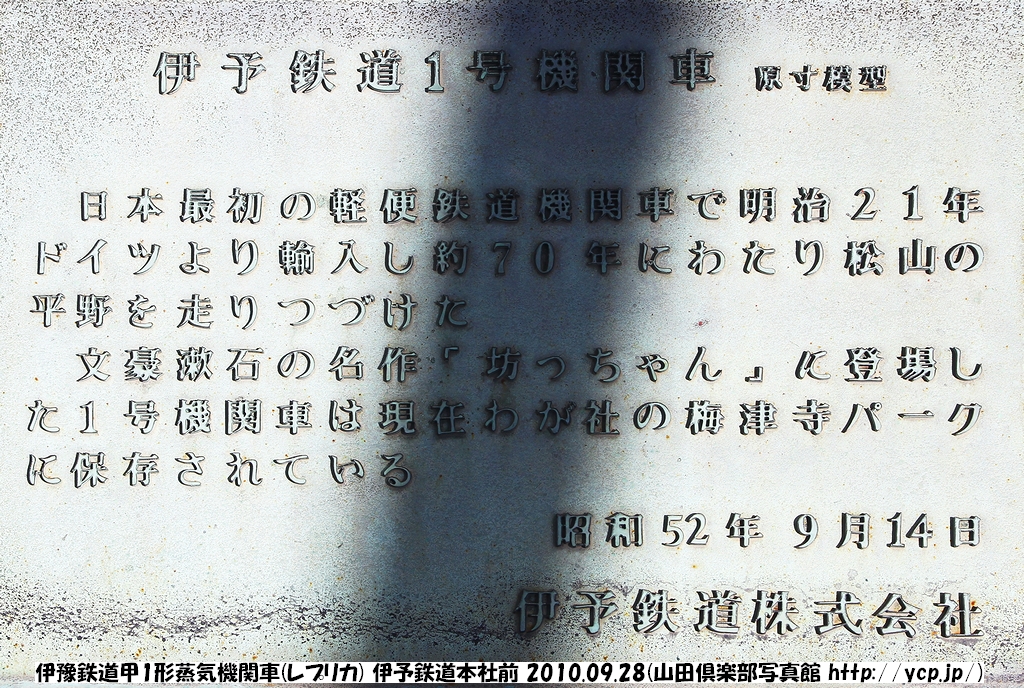 伊予鉄道1号機関車 原寸模型
日本最初の軽便鉄道機関車で明治21年
ドイツより輸入し約70年にわたり松山の
平野を走りつづけた
文豪漱石の名作「坊っちゃん」に登場し
た1号機関車は現在わが社の梅津寺パーク
に保存されている
昭和52年 9月14日
伊予鉄道株式会社
伊豫鉄道甲1形蒸気機関車(レプリカ) 伊予鉄道本社前 2010.09.28(山田倶楽部写真館 http://ycp.jp/)